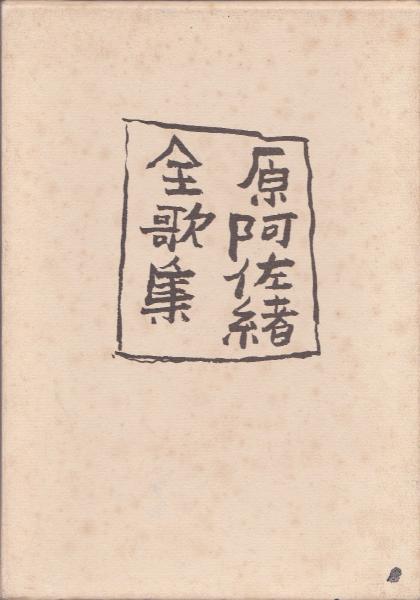 原阿佐緒
全歌集